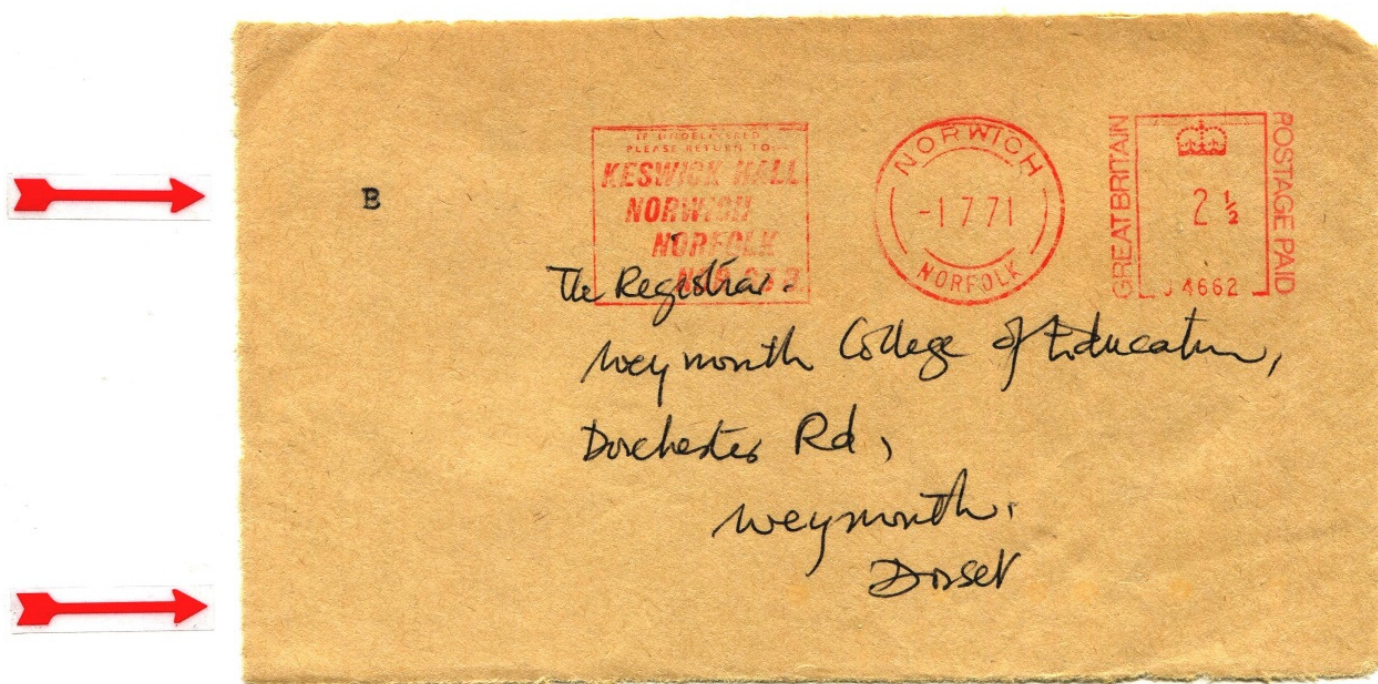 IF UNDELIVERED
PLEASE RETURN TO:-
KESWICK HALL
NORWICH
NORFOLK
NORWICH
-1 7 71
NORFOLK
GREAT BRITAIN
2 ½
4662
POSTAGE PAID
B
The Registrar.
Weymouth College of Education,
Dorchester Rd,
Weymouth.
Dorset